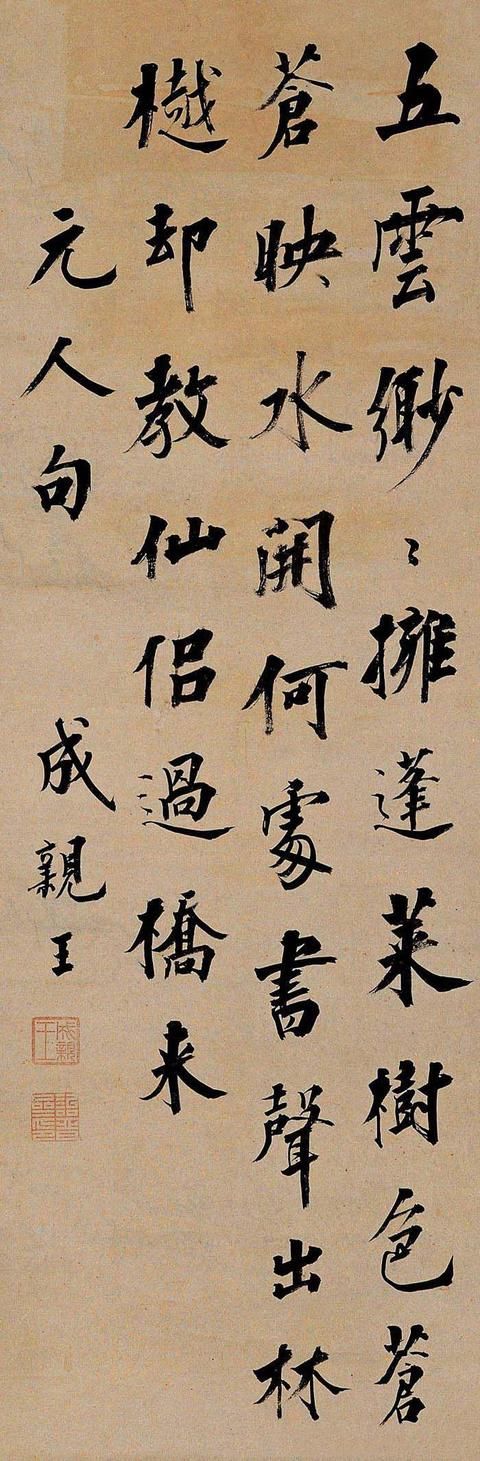 五雲緲〻擁蓬萊樹色蒼
蒼映水開何處書聲出林
樾却教仙侣過橋来
元人句
成親王
成親王